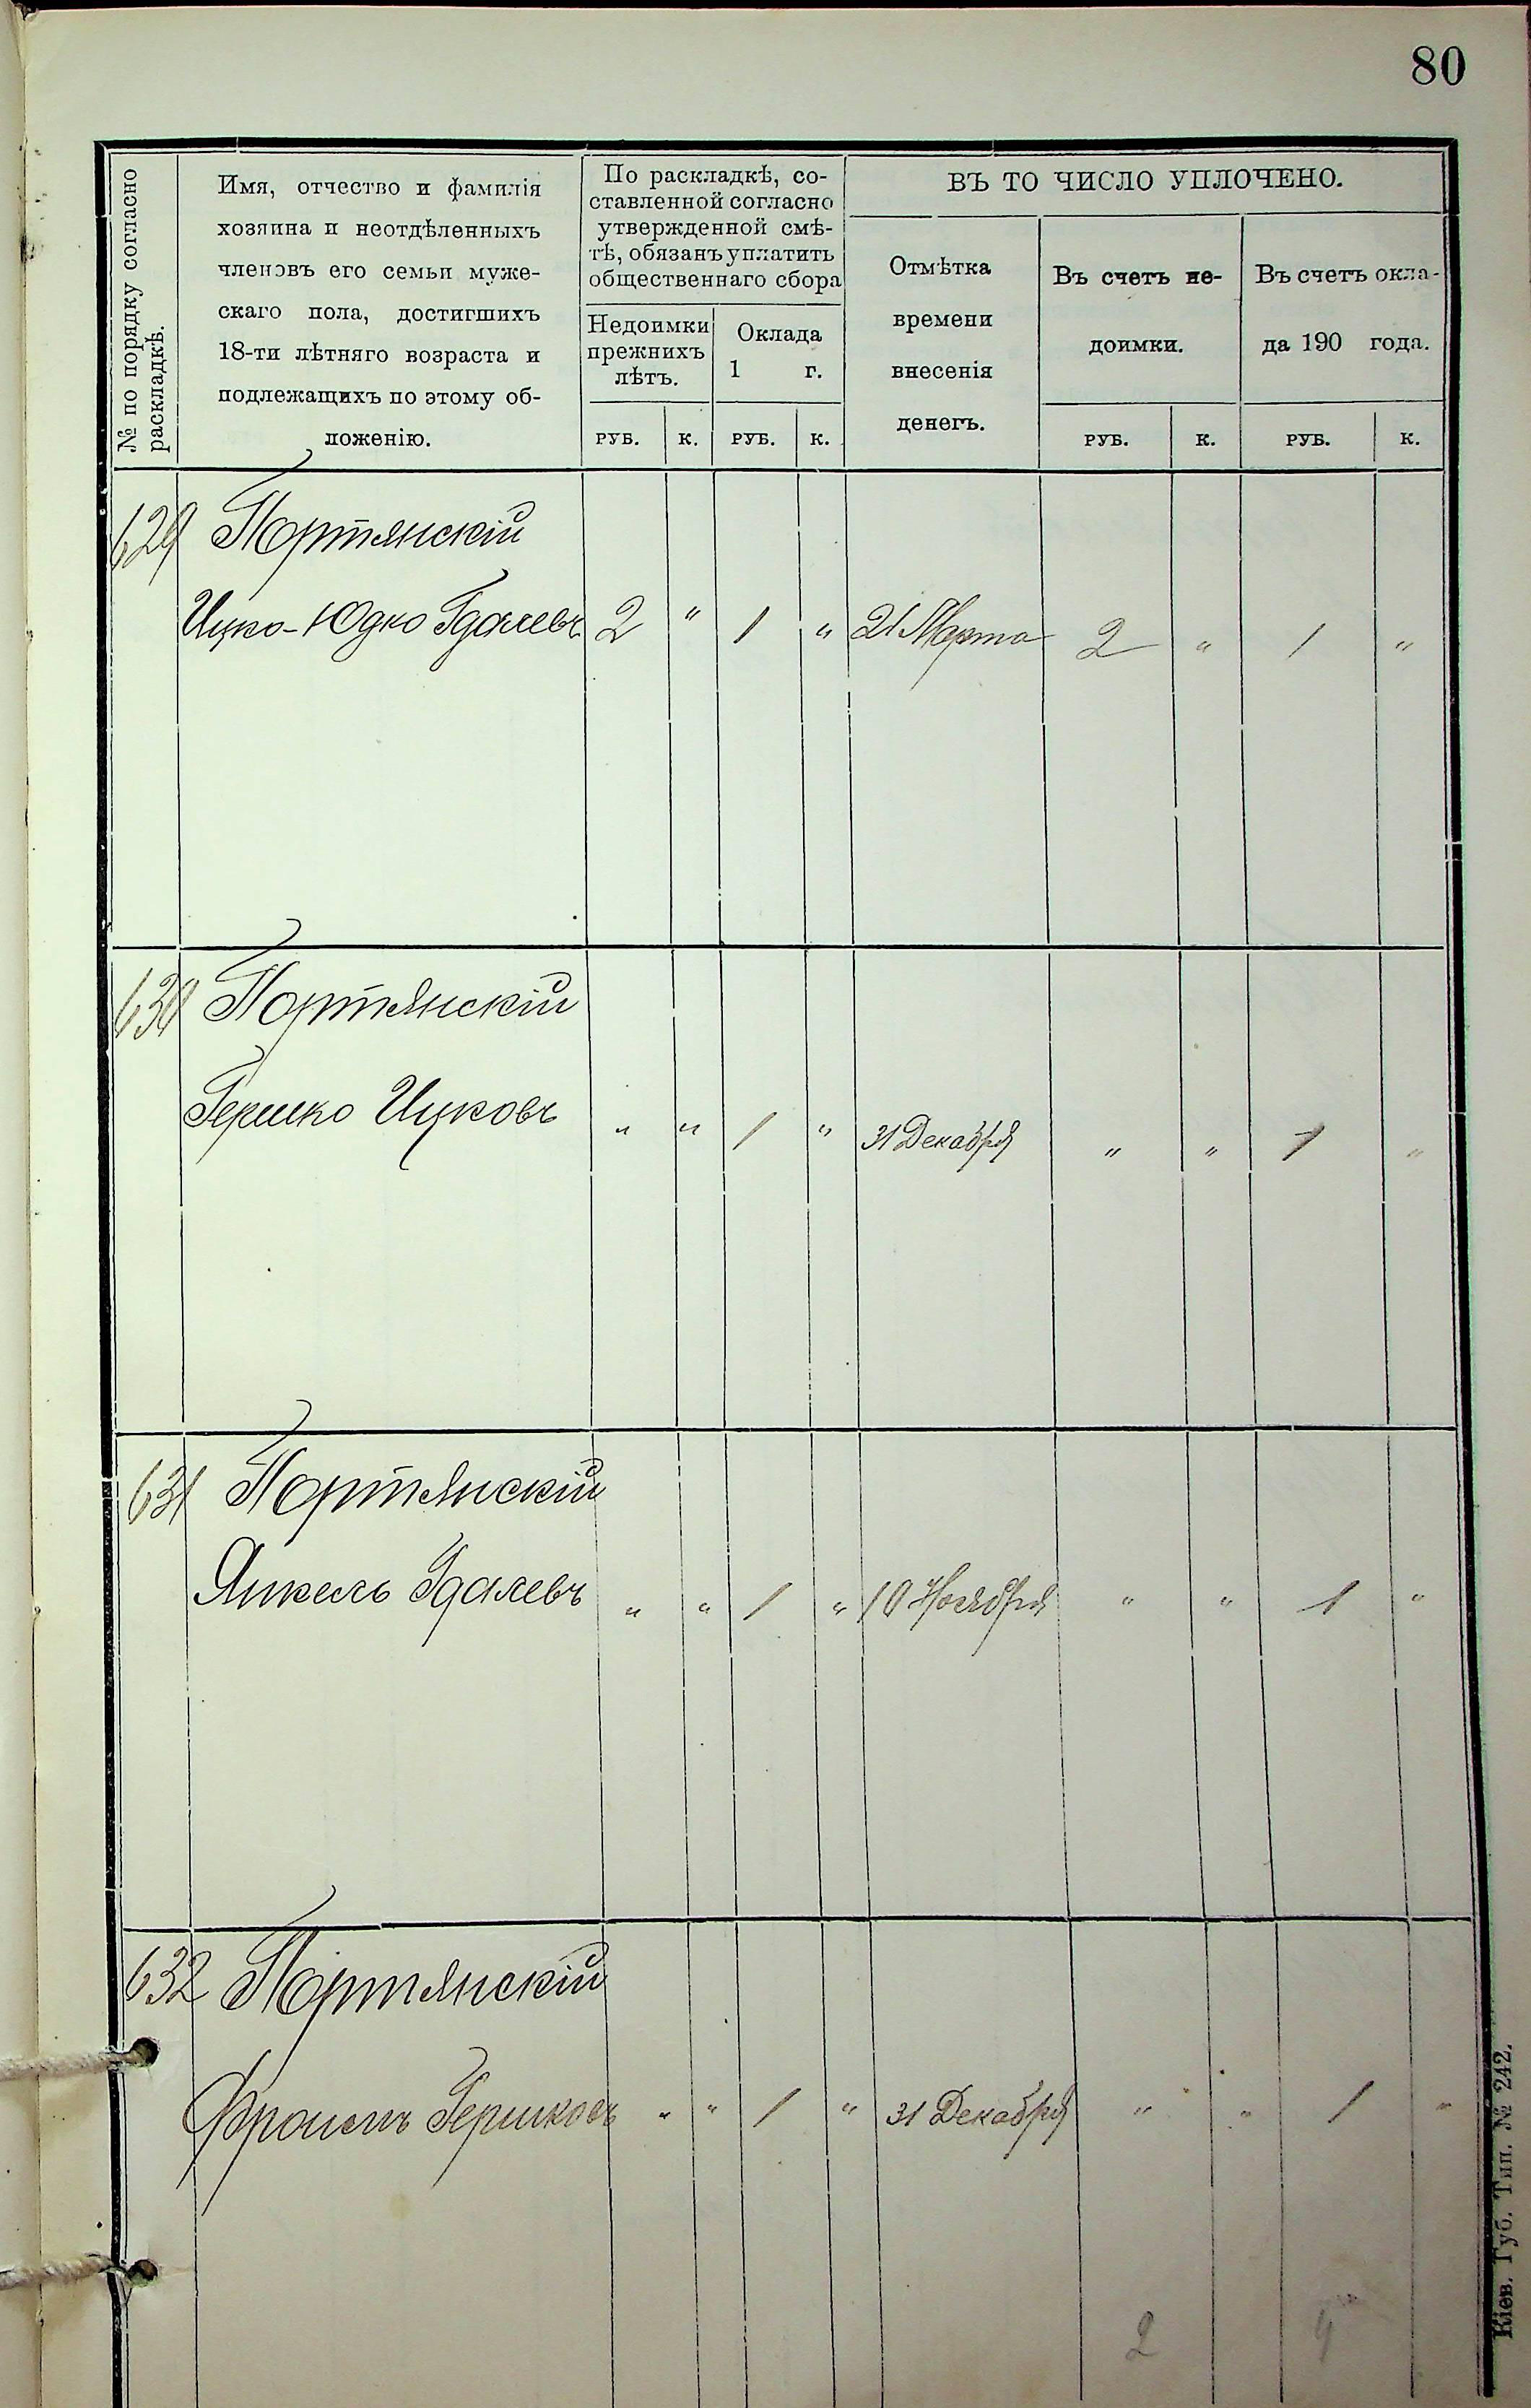 80
№ по порядку согласно
раскладкѣ.
Имя, отчество и фамилія
хозяина и неотдѣленныхъ
членовъ его семьи муже-
скаго пола, достигшихъ
18-ти лѣтняго возраста и
подлежащихъ по этому об-
ложенію.
По раскладкѣ, со-
ставленной согласно
утвержденной смѣ-
тѣ, обязанъ уплатить
общественнаго сбора
Недоимки
прежнихъ
лѣтъ.
Оклада
1 г.
ВЪ ТО ЧИСЛО УПЛОЧЕНО.
Отмѣтка
времени
внесенія
денегъ.
Въ счетъ не-
доимки.
Въ счетъ окла-
да 190 года.
РУБ. К. РУБ. К. РУБ. К. РУБ. К.
629 Портянскій
Ицко-Юдко Гдалевъ 2 " 1 " 21 Марта 2 " 1 "
630 Портянскій
Гершко Ицковъ " " 1 " 31 Декабря " " 1 "
631 Портянскій
Янкель Гдалевъ " " 1 " 10 Ноября " " 1 "
632 Портянскій
Фроимъ Гершковъ " " 1 " 31 Декабря " " 1 "
2 4
Кіев. Губ. Тип. № 242.